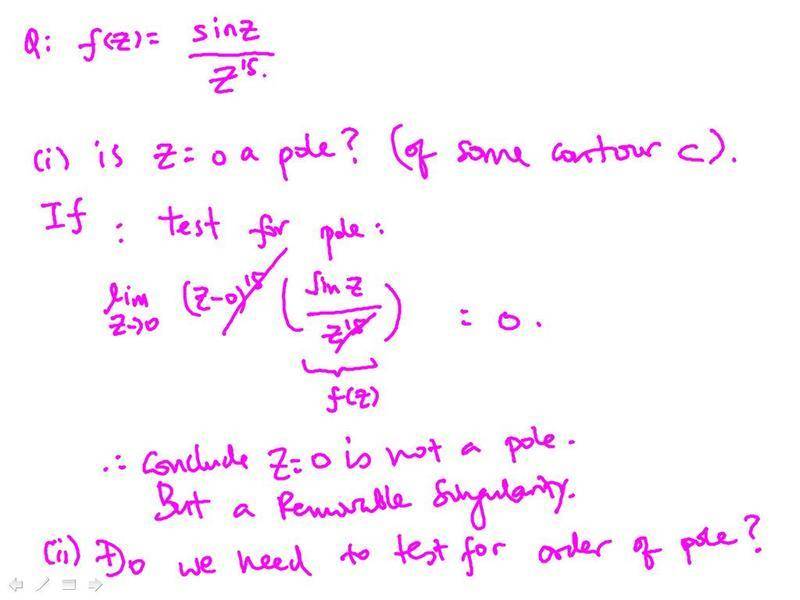 Q: f(z) = sinz / z^15.
(i) is z=0 a pole? (of some contour C).
If : test for pole:
lim z→0 (z-0)^15 (sin z / z^15) = 0.
f(z)
∴ conclude z=0 is not a pole.
But a Removable Singularity.
(ii) Do we need to test for order of pole?